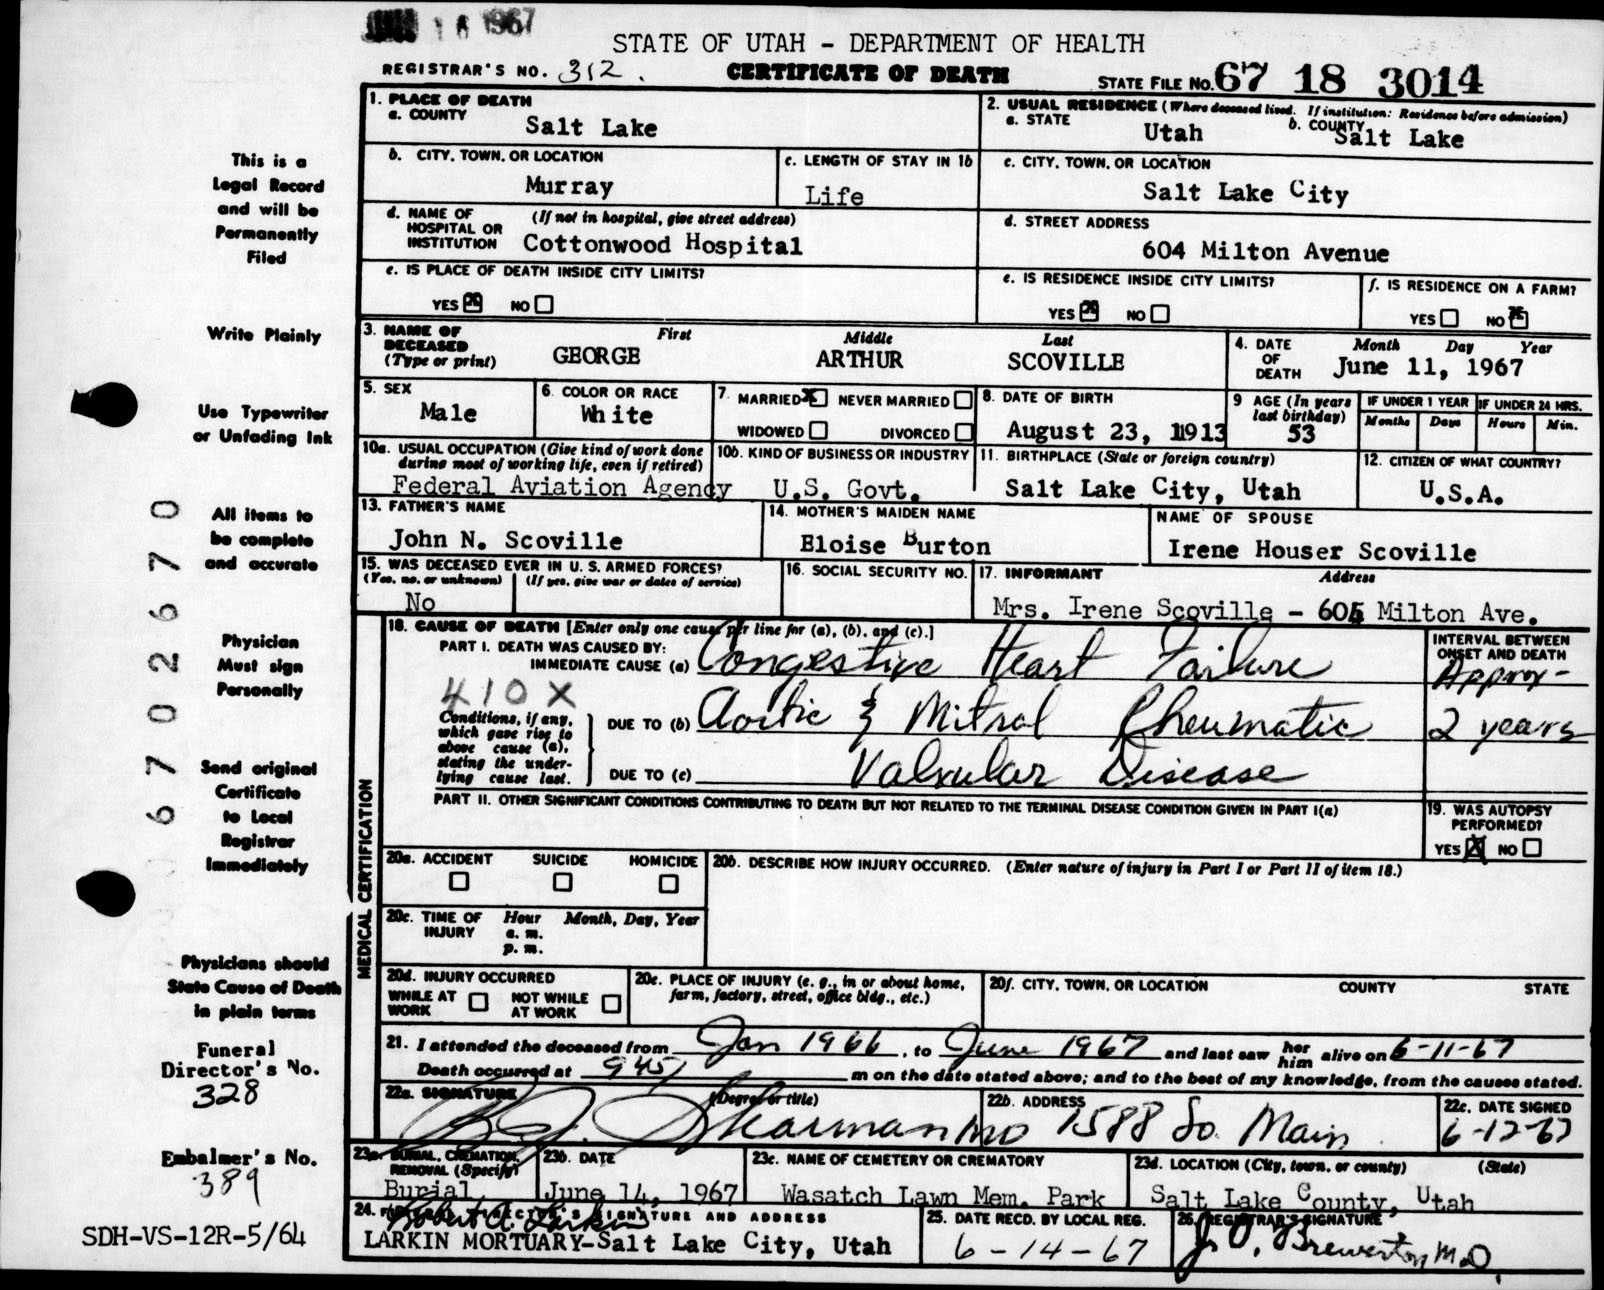 16 1967
STATE OF UTAH - DEPARTMENT OF HEALTH
REGISTRAR'S NO. 312. CERTIFICATE OF DEATH STATE FILE NO. 67 18 3014
1. PLACE OF DEATH
a. COUNTY
Salt Lake
2. USUAL RESIDENCE (Where deceased lived. If institution: Residence before admission)
a. STATE Utah b. COUNTY Salt Lake
b. CITY, TOWN, OR LOCATION
Murray
c. LENGTH OF STAY IN 1b
Life
c. CITY, TOWN, OR LOCATION
Salt Lake City
d. NAME OF HOSPITAL OR INSTITUTION (If not in hospital, give street address)
Cottonwood Hospital
d. STREET ADDRESS
604 Milton Avenue
e. IS PLACE OF DEATH INSIDE CITY LIMITS?
YES NO
e. IS RESIDENCE INSIDE CITY LIMITS?
YES NO
f. IS RESIDENCE ON A FARM?
YES NO
3. NAME OF DECEASED (Type or print)
First Middle Last
GEORGE ARTHUR SCOVILLE
4. DATE OF DEATH Month Day Year
June 11, 1967
5. SEX
Male
6. COLOR OR RACE
White
7. MARRIED X NEVER MARRIED
WIDOWED DIVORCED
8. DATE OF BIRTH
August 23, 1913
9 AGE (In years last birthday)
53
IF UNDER 1 YEAR
Months Days
IF UNDER 24 HRS.
Hours Min.
10a. USUAL OCCUPATION (Give kind of work done during most of working life, even if retired)
Federal Aviation Agency
10b. KIND OF BUSINESS OR INDUSTRY
U.S. Govt.
11. BIRTHPLACE (State or foreign country)
Salt Lake City, Utah
12. CITIZEN OF WHAT COUNTRY?
U.S.A.
13. FATHER'S NAME
John N. Scoville
14. MOTHER'S MAIDEN NAME
Eloise Burton
NAME OF SPOUSE
Irene Houser Scoville
15. WAS DECEASED EVER IN U. S. ARMED FORCES?
(Yes, no, or unknown) (If yes, give war or dates of service)
No
16. SOCIAL SECURITY NO.
17. INFORMANT Address
Mrs. Irene Scoville - 604 Milton Ave.
MEDICAL CERTIFICATION
18. CAUSE OF DEATH [Enter only one cause per line for (a), (b), and (c).]
PART I. DEATH WAS CAUSED BY:
IMMEDIATE CAUSE (a) Congestive Heart Failure
410X
Conditions, if any, which gave rise to above cause (a), stating the underlying cause last.
DUE TO (b) Aortic & Mitral Rheumatic
DUE TO (c) Valvular Disease
INTERVAL BETWEEN ONSET AND DEATH
Approx-
2 years
PART II. OTHER SIGNIFICANT CONDITIONS CONTRIBUTING TO DEATH BUT NOT RELATED TO THE TERMINAL DISEASE CONDITION GIVEN IN PART I(a)
19. WAS AUTOPSY PERFORMED?
YES X NO
20a. ACCIDENT SUICIDE HOMICIDE
20b. DESCRIBE HOW INJURY OCCURRED. (Enter nature of injury in Part I or Part II of item 18.)
20c. TIME OF INJURY Hour Month, Day, Year
a. m.
p. m.
20d. INJURY OCCURRED
WHILE AT WORK NOT WHILE AT WORK
20e. PLACE OF INJURY (e. g., in or about home, farm, factory, street, office bldg., etc.)
20f. CITY, TOWN, OR LOCATION COUNTY STATE
21. I attended the deceased from Jan 1966, to June 1967 and last saw her him alive on 6-11-67
Death occurred at 945 m on the date stated above; and to the best of my knowledge, from the causes stated.
22a. SIGNATURE (Degree or title)
Sharman MD
22b. ADDRESS
1588 So. Main
22c. DATE SIGNED
6-12-67
23a. BURIAL, CREMATION, REMOVAL (Specify)
Burial
23b. DATE
June 14, 1967
23c. NAME OF CEMETERY OR CREMATORY
Wasatch Lawn Mem. Park
23d. LOCATION (City, town, or county) (State)
Salt Lake County, Utah
24. FUNERAL DIRECTOR'S SIGNATURE AND ADDRESS
Robert A. Larkin
LARKIN MORTUARY-Salt Lake City, Utah
25. DATE RECD. BY LOCAL REG.
6-14-67
26. REGISTRAR'S SIGNATURE
Brewerton, M.D.
This is a
Legal Record
and will be
Permanently
Filed
Write Plainly
Use Typewriter
or Unfading Ink
All items to
be complete
and accurate
Physician
Must sign
Personally
Send original
Certificate
to Local
Registrar
Immediately
Physicians should
State Cause of Death
in plain terms
Funeral
Director's No.
328
Embalmer's No.
389
SDH-VS-12R-5/64
67 02670